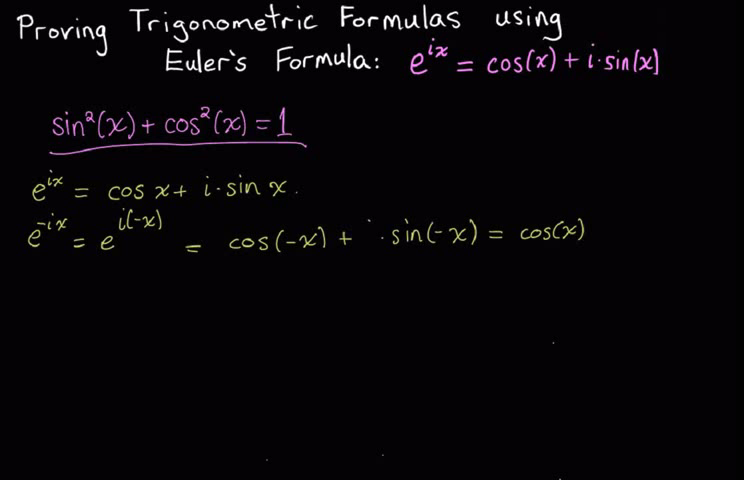 Proving Trigonometric Formulas using
Euler's Formula: e^{ix} = cos(x) + i·sin(x)
sin²(x) + cos²(x) = 1
e^{ix} = cos x + i·sin x.
e^{-ix} = e^{i(-x)} = cos(-x) + i·sin(-x) = cos(x)